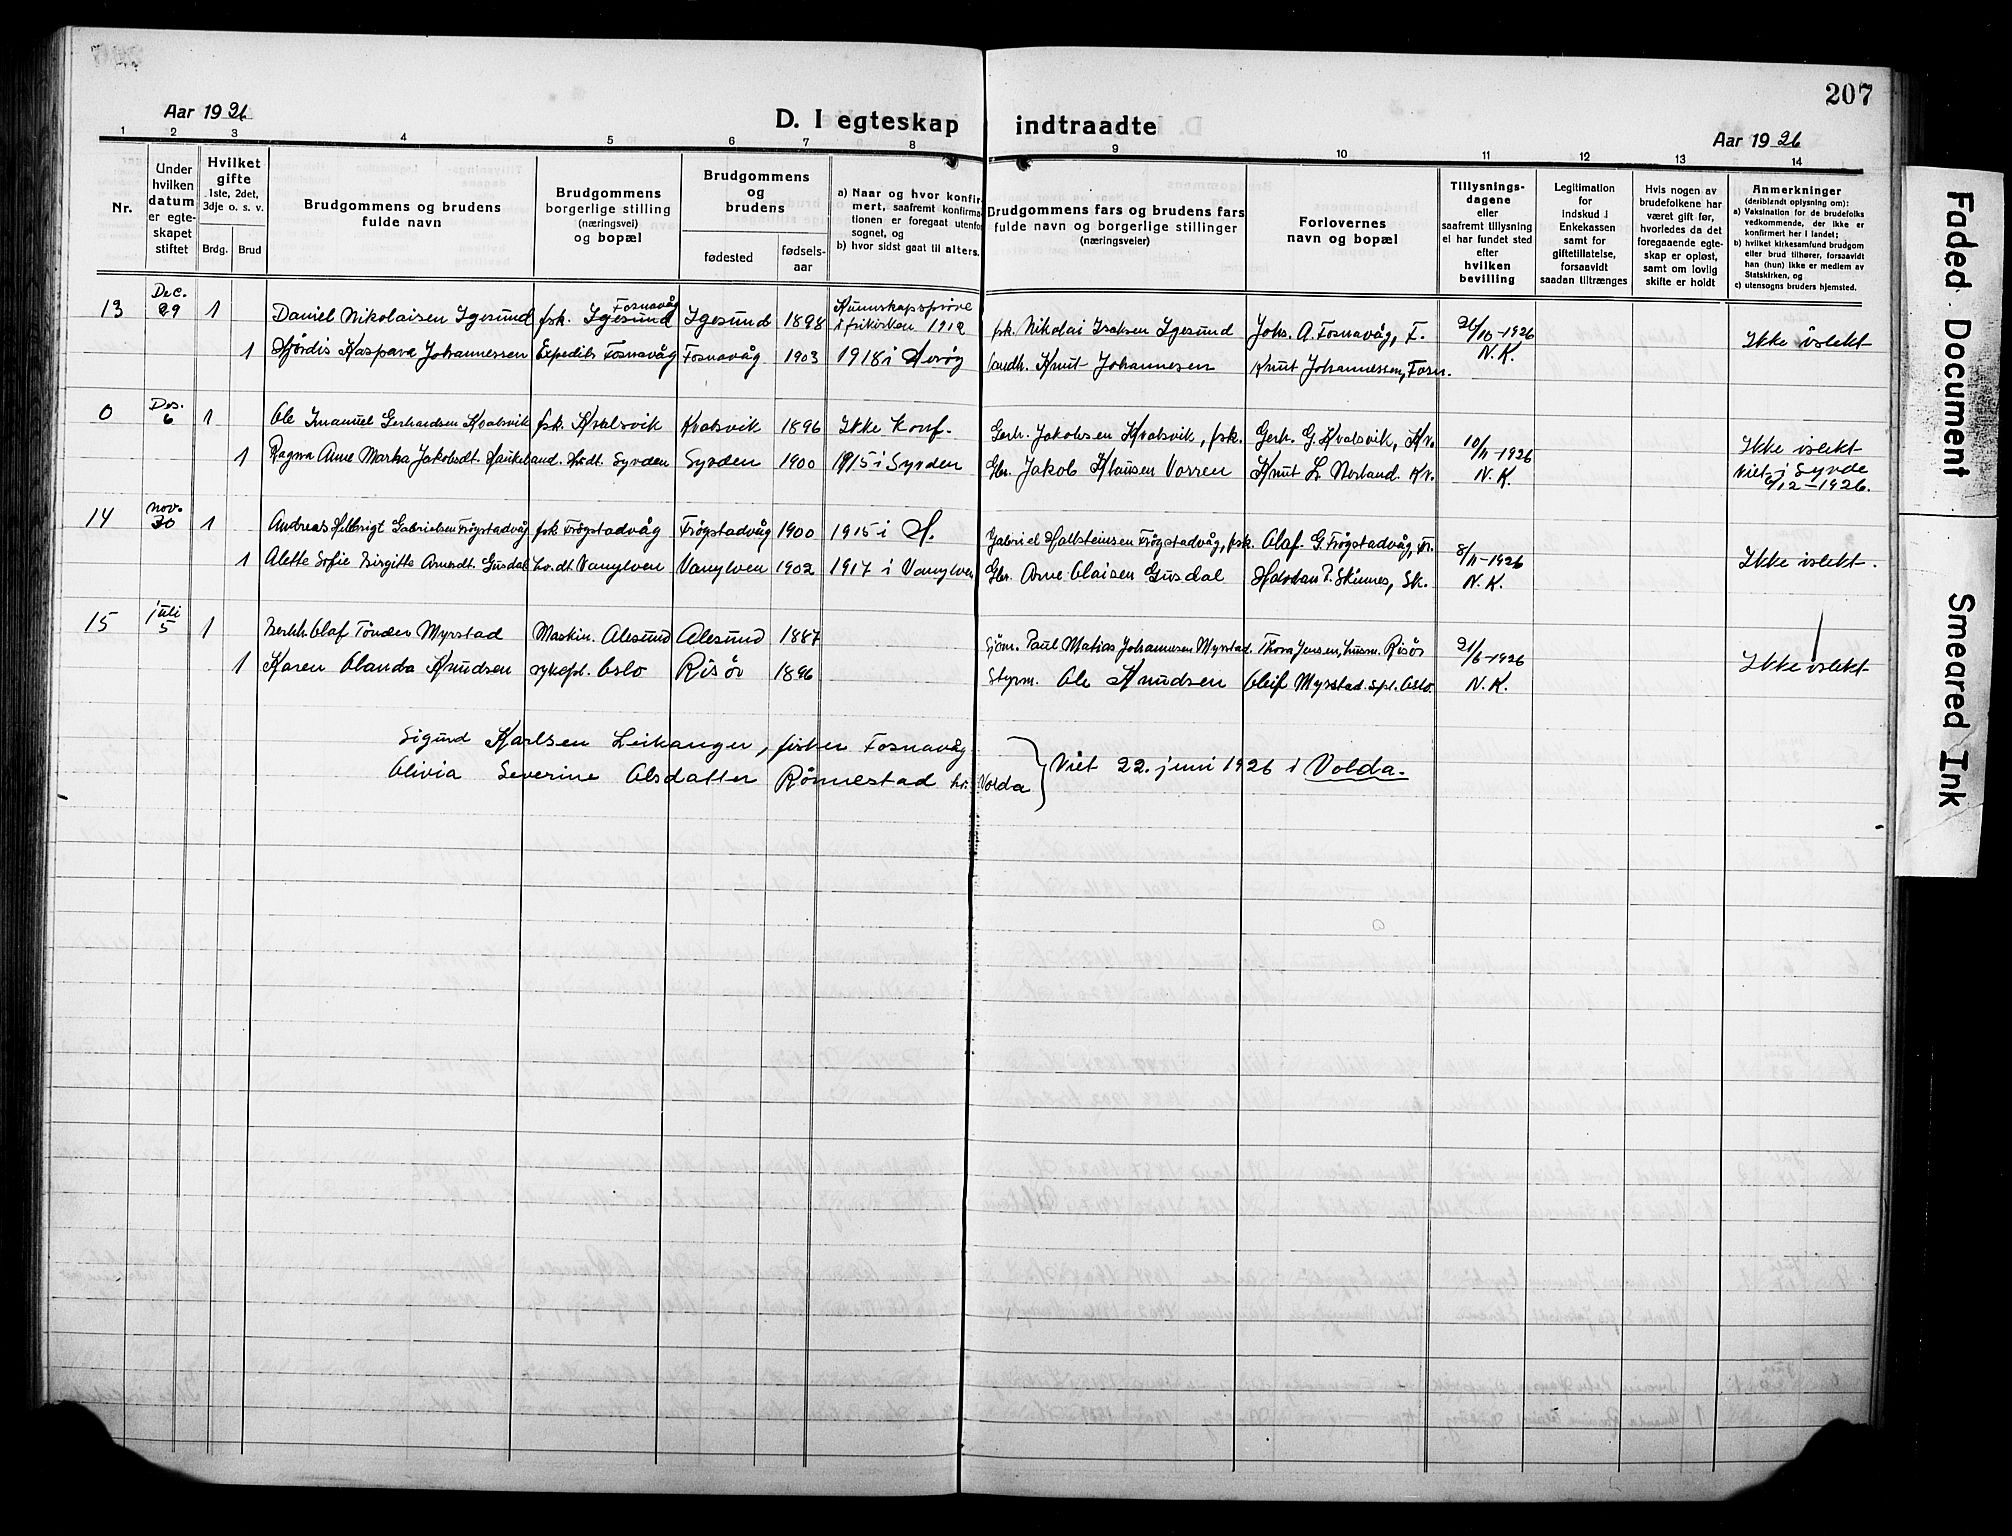 207
Aar 1926
D. I egteskap indtraadte
Aar 1926
1 2 3 4 5 6 7 8 9 10 11 12 13 14
Nr.
Under hvilken datum er egteskapet stiftet
Hvilket gifte 1ste, 2det, 3dje o. s. v.
Brdg. Brud
Brudgommens og brudens fulde navn
Brudgommens borgerlige stilling (næringsvei) og bopæl
Brudgommens og brudens
fødested
fødselsaar
a) Naar og hvor konfirmert, saafremt konfirmationen er foregaat utenfor sognet, og
b) hvor sidst gaat til alters.
Brudgommens fars og brudens fars fulde navn og borgerlige stillinger (næringsveier)
Forlovernes navn og bopæl
Tillysningsdagene eller saafremt tillysning ei har fundet sted efter hvilken bevilling
Legitimation for Indskud i Enkekassen samt for giftetillatelse, forsaavidt saadan tiltrænges
Hvis nogen av brudefolkene har været gift før, hvorledes da det foregaaende egteskap er opløst, samt om lovlig skifte er holdt
Anmerkninger (deriblandt oplysning om):
a) Vaksination for de brudefolks vedkommende, der ikke er konfirmert her i landet;
b) hvilket kirkesamfund brudgom eller brud tilhører, forsaavidt han (hun) ikke er medlem av Statskirken, og
c) utensogns bruders hjemsted.
13 Dec. 29 1 Daniel Nikolaisen Igesund fsk. Igesund Fosnavåg Igesund 1898 Kunnskapsprøve i frikirken 1912 fsk. Nikolai Isaksen Igesund Johs. A. Fosnavåg, F. 21/10-1926 Ikke i slekt
1 Hjördis Kaspara Johannessen Expeditr. Fosnavåg Fosnavåg 1903 1918 i Heröy Landh. Knut Johannesen Knut Johannessen, Fosn. N.K.
0 Des. 6 1 Ole Imanuel Gerhardsen Kvalsvik fsk. Kvalsvik Kvalsvik 1896 Ikke konf. Gerh. Jakobsen Kvalsvik, fsk. Gerh. G. Kvalsvik, Kv. 10/11-1926 Ikke i slekt
1 Ragna Anne Marta Jakobsdt. Haukeland. hv.dt. Syvden Syvden 1900 1915 i Syvden Gbr. Jakob Klausen Vorren Knut L. Nerland. Kv. N.K. Viet i Syvde 6/12-1926.
14 nov. 30 1 Andreas Helbrigt Gabrielsen Frögstadvåg fsk Frögstadvåg Frögstadvåg 1900 1915 i H. Gabriel Hallsteinsen Frögstadvåg, fsk. Olaf G. Frögstadvåg, Fr. 8/11-1926 Ikke i slekt.
1 Alette Sofie Birgitte Arnesdt. Gusdal hv.dt. Vanylven Vanylven 1902 1917 i Vanylven Gbr. Arne Olaisen Gusdal Halvdan P. Skinnes, Sk. N.K.
15 juli 5 1 Berth. Olaf Tönder Myrstad Maskin. Ålesund Ålesund 1887 Sjöm. Paul Matias Johannesen Myrstad Thora Jensen, husm. Risör 21/6-1926 Ikke i slekt
1 Karen Olanda Knudsen sykepl. Oslo Risör 1896 Styrm. Ole Knudsen Oleif Myrstad. spl. Oslo. N.K.
Sigurd Karlsen Leikanger, fisker Fosnavåg
Olivia Severine Olsdatter Rönnestad hv. Volda } Viet 22. juni 1926 i Volda.
Faded Document
Smeared Ink